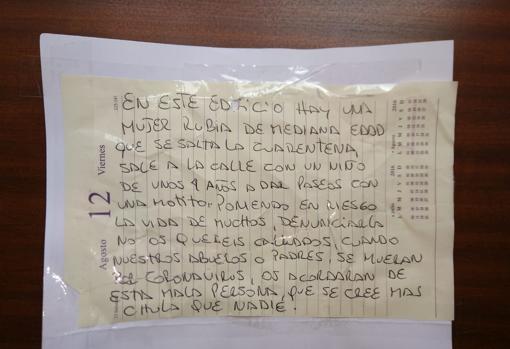 EN ESTE EDIFICIO HAY UNA
MUJER RUBIA DE MEDIANA EDAD
QUE SE SALTA LA CUARENTENA,
SALE A LA CALLE CON UN NIÑO
DE UNOS 4 AÑOS A DAR PASEOS CON
UNA MOTITO, PONIENDO EN RIESGO
LA VIDA DE MUCHOS, DENUNCIARLA
NO OS QUEDEIS CALLADOS, CUANDO
NUESTROS ABUELOS O PADRES, SE MUERAN
POR CORONAVIRUS, OS ACORDARAN DE
ESTA MALA PERSONA, QUE SE CREE MAS
CHULA QUE NADIE.
Agosto 12 Viernes
2016
2016